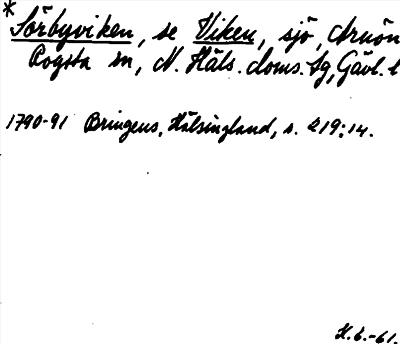 * Sörbyviken, se Viken, sjö, Arnön
Rogsta sn, N. Häls. doms. sg, Gävl. l
1790-91 Bringéus, Hälsingland, s. 219:14.
H.E.-61.